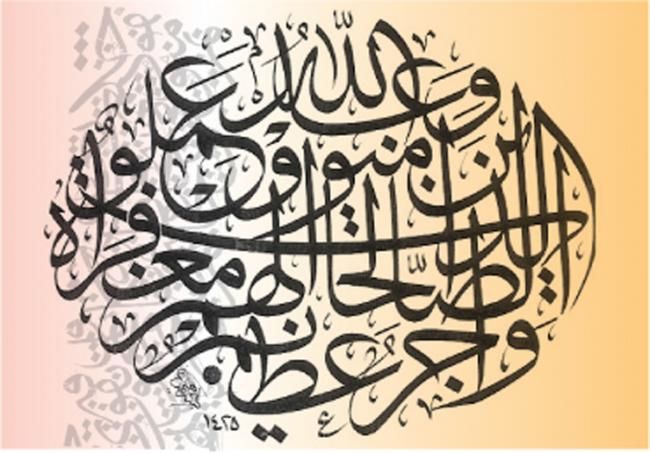 وَعَدَ اللّٰه
الذين آمنوا وعملوا
الصّالحات لهم مغفرة
وأجر عظيم
١٤٢٥